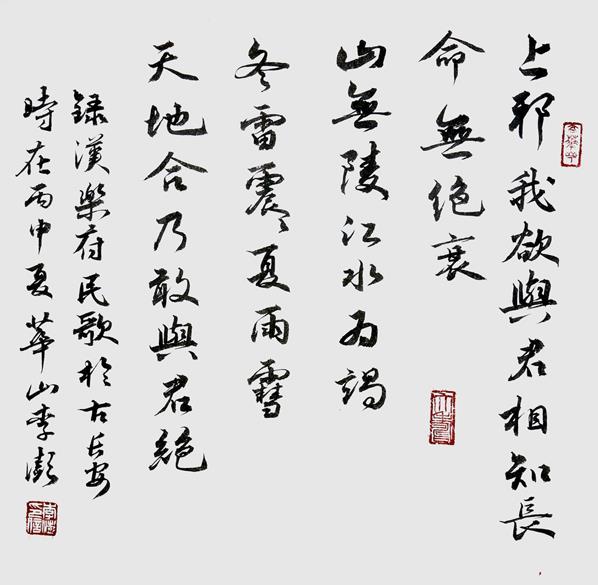 上邪我欲與君相知長
命無绝衰
山無陵江水为竭
冬雷震〻夏雨雪
天地合乃敢與君絕
録漢樂府民歌於古長安
時在丙申夏華山李